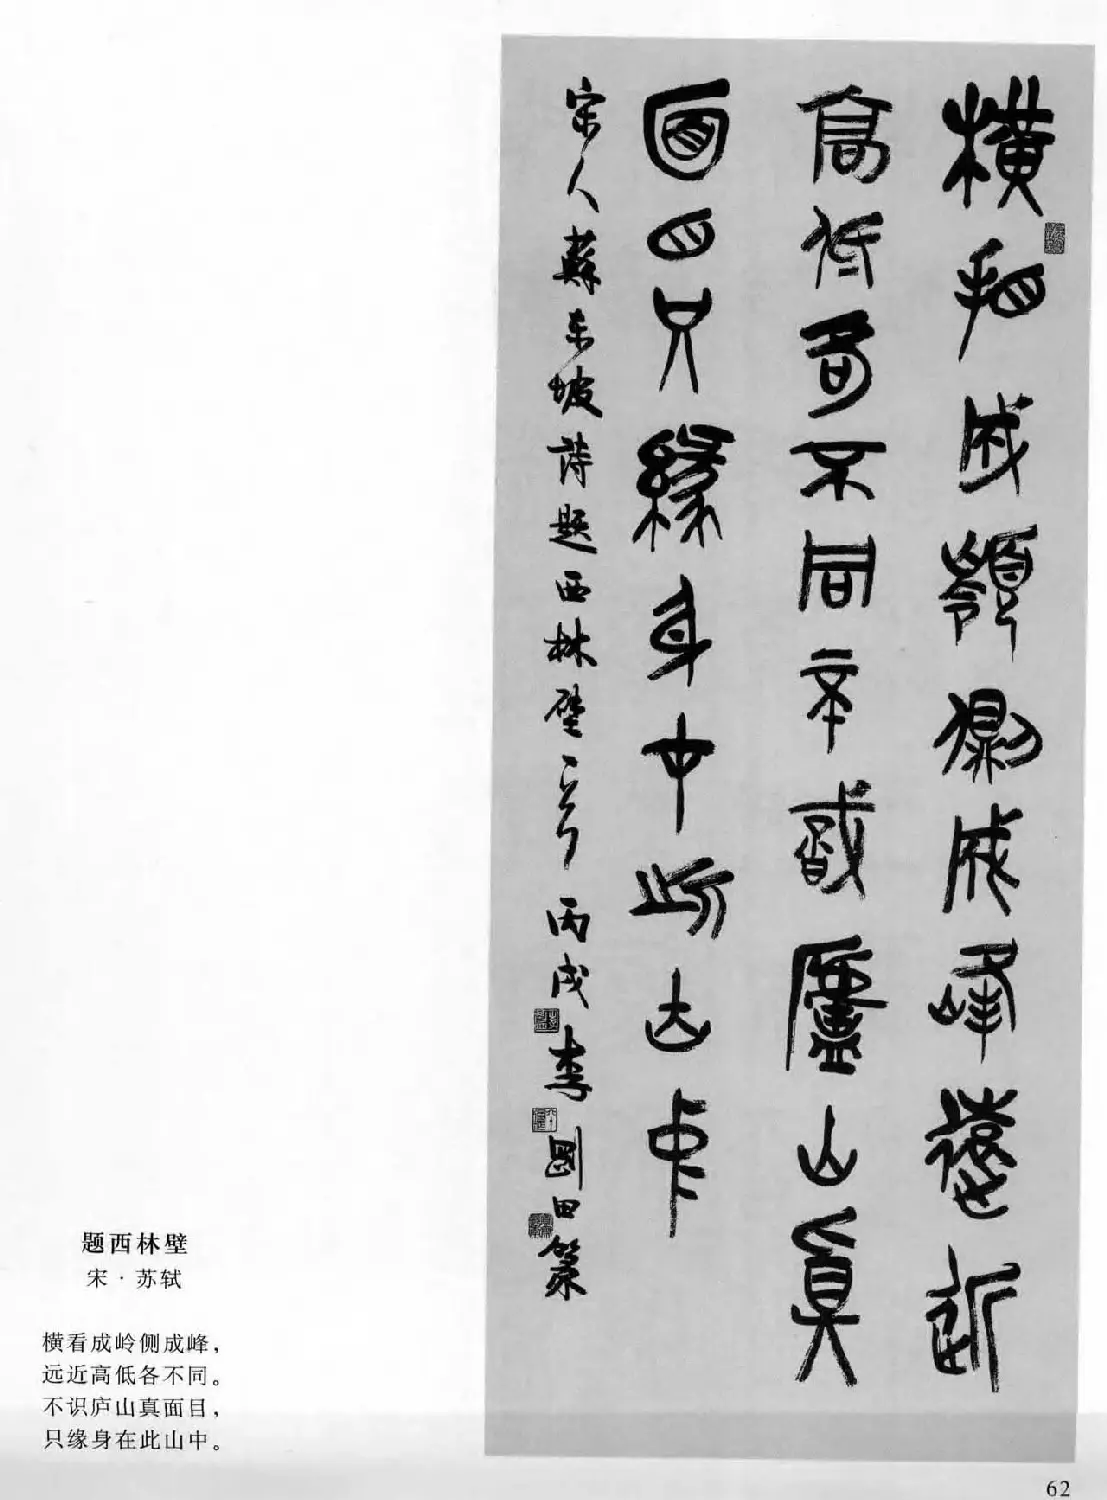 橫看成嶺側成峰遠近
高低各不同不識廬山真
面目只緣身在此山中
宋人蘇东坡詩題西林壁一首丙戌李剛田篆
题西林壁
宋·苏轼
横看成岭侧成峰,
远近高低各不同。
不识庐山真面目,
只缘身在此山中。
62